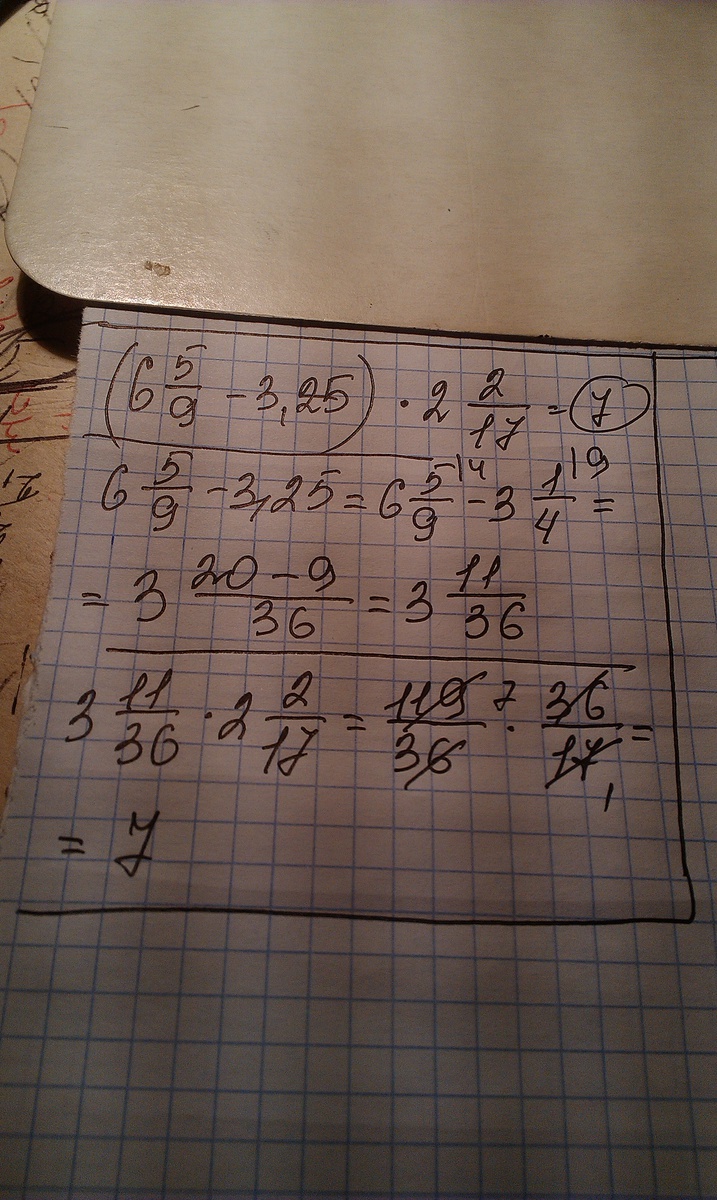 (6 5/9 - 3,25) · 2 2/17 = 7
6 5/9 - 3,25 = 6 5/9 \4 - 3 1/4 \9 =
= 3 (20 - 9)/36 = 3 11/36
3 11/36 · 2 2/17 = 119/36 7 · 36/17 1 =
= 7